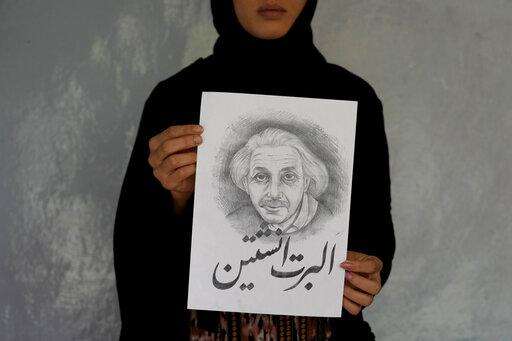 البرت انشتین